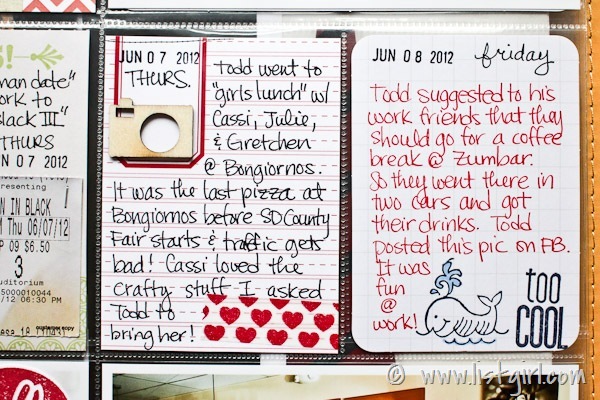 man date"
work to
Black III"
THURS
07 2012
Presenting
N IN BLACK
Thu 06/07/12
09 $6.50
3
uditorium
5000010044
12 06:30 PM
customer copy
JUN 07 2012
THURS.
Todd went to
"girls lunch" w/
Cassi, Julie,
& Gretchen
@ Bongiornos.
It was the last pizza at
Bongiornos before SD County
Fair starts & traffic gets
bad! Cassi loved the
crafty stuff I asked
Todd to
bring her!
JUN 08 2012 friday
Todd suggested to his
work friends that they
should go for a coffee
break @ Zumbar.
So they went there in
two cars and got
their drinks. Todd
posted this pic on FB.
It was
fun
@
work!
too
COOL
© www.listgirl.com